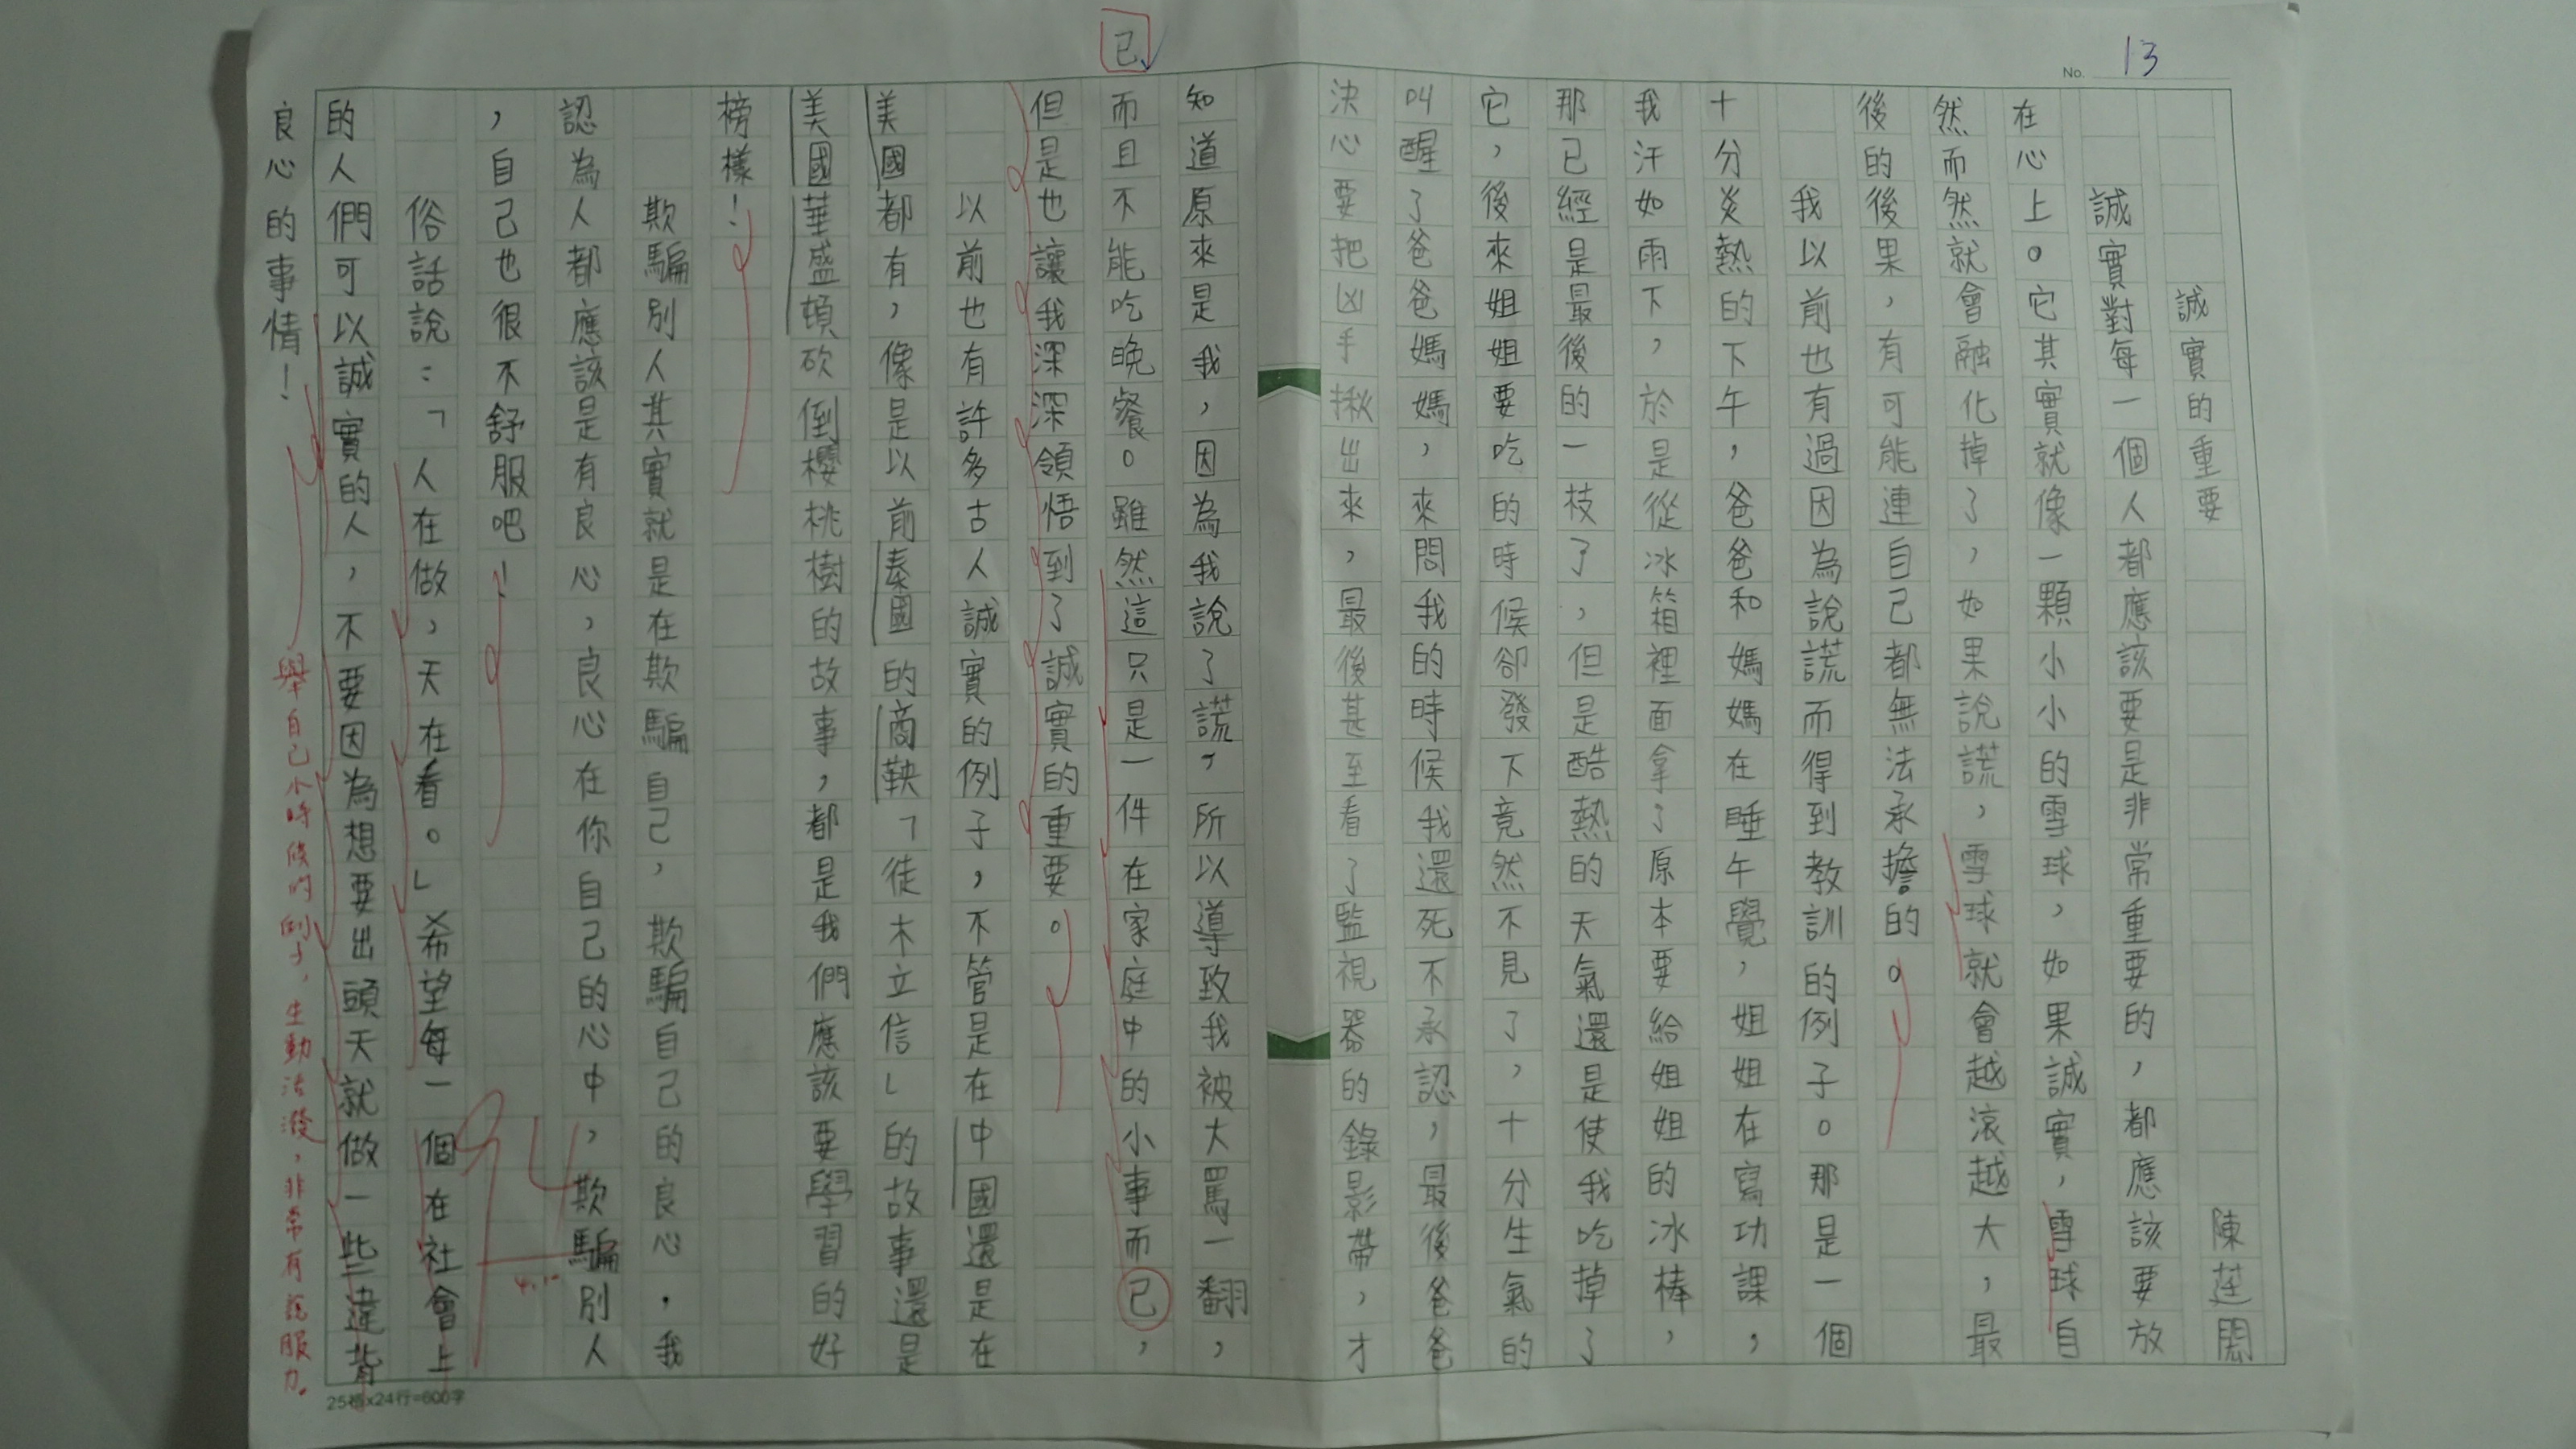 No. 13
誠實的重要
陳莛閎
誠實對每一個人都應該要是非常重要的，都應該要放
在心上。它其實就像一顆小小的雪球，如果誠實，雪球自
然而然就會融化掉了，如果說謊，雪球就會越滾越大，最
後的後果，有可能連自己都無法承擔的。
我以前也有過因為說謊而得到教訓的例子。那是一個
十分炎熱的下午，爸爸和媽媽在睡午覺，姐姐在寫功課，
我汗如雨下，於是從冰箱裡面拿了原本要給姐姐的冰棒，
那已經是最後的一枝了，但是酷熱的天氣還是使我吃掉了
它，後來姐姐要吃的時候卻發下竟然不見了，十分生氣的
叫醒了爸爸媽媽，來問我的時候我還死不承認，最後爸爸
決心要把凶手揪出來，最後甚至看了監視器的錄影帶，才
知道原來是我，因為我說了謊，所以導致我被大罵一翻，
而且不能吃晚餐。雖然這只是一件在家庭中的小事而己，
已
但是也讓我深深領悟到了誠實的重要。
以前也有許多古人誠實的例子，不管是在中國還是在
美國都有，像是以前秦國的商鞅「徒木立信」的故事還是
美國華盛頓砍倒櫻桃樹的故事，都是我們應該要學習的好
榜樣！
欺騙別人其實就是在欺騙自己，欺騙自己的良心．我
認為人都應該是有良心，良心在你自己的心中，欺騙別人
，自己也很不舒服吧！
俗話說：「人在做，天在看。」希望每一個在社會上
的人們可以誠實的人，不要因為想要出頭天就做一些違背
良心的事情！
舉自己小時候的例子，生動活潑，非常有說服力。
25格x24行=600字